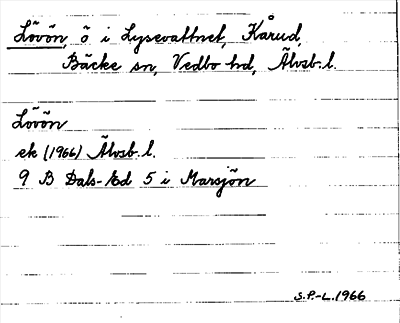 Lövön, ö i Lysevattnet, Kårud,
Bäcke sn, Vedbo hd, Älvsb. l.
Lövön
ek (1966) Älvsb. l.
9 B Dals-Ed 5 i Marsjön
S.P.-L. 1966